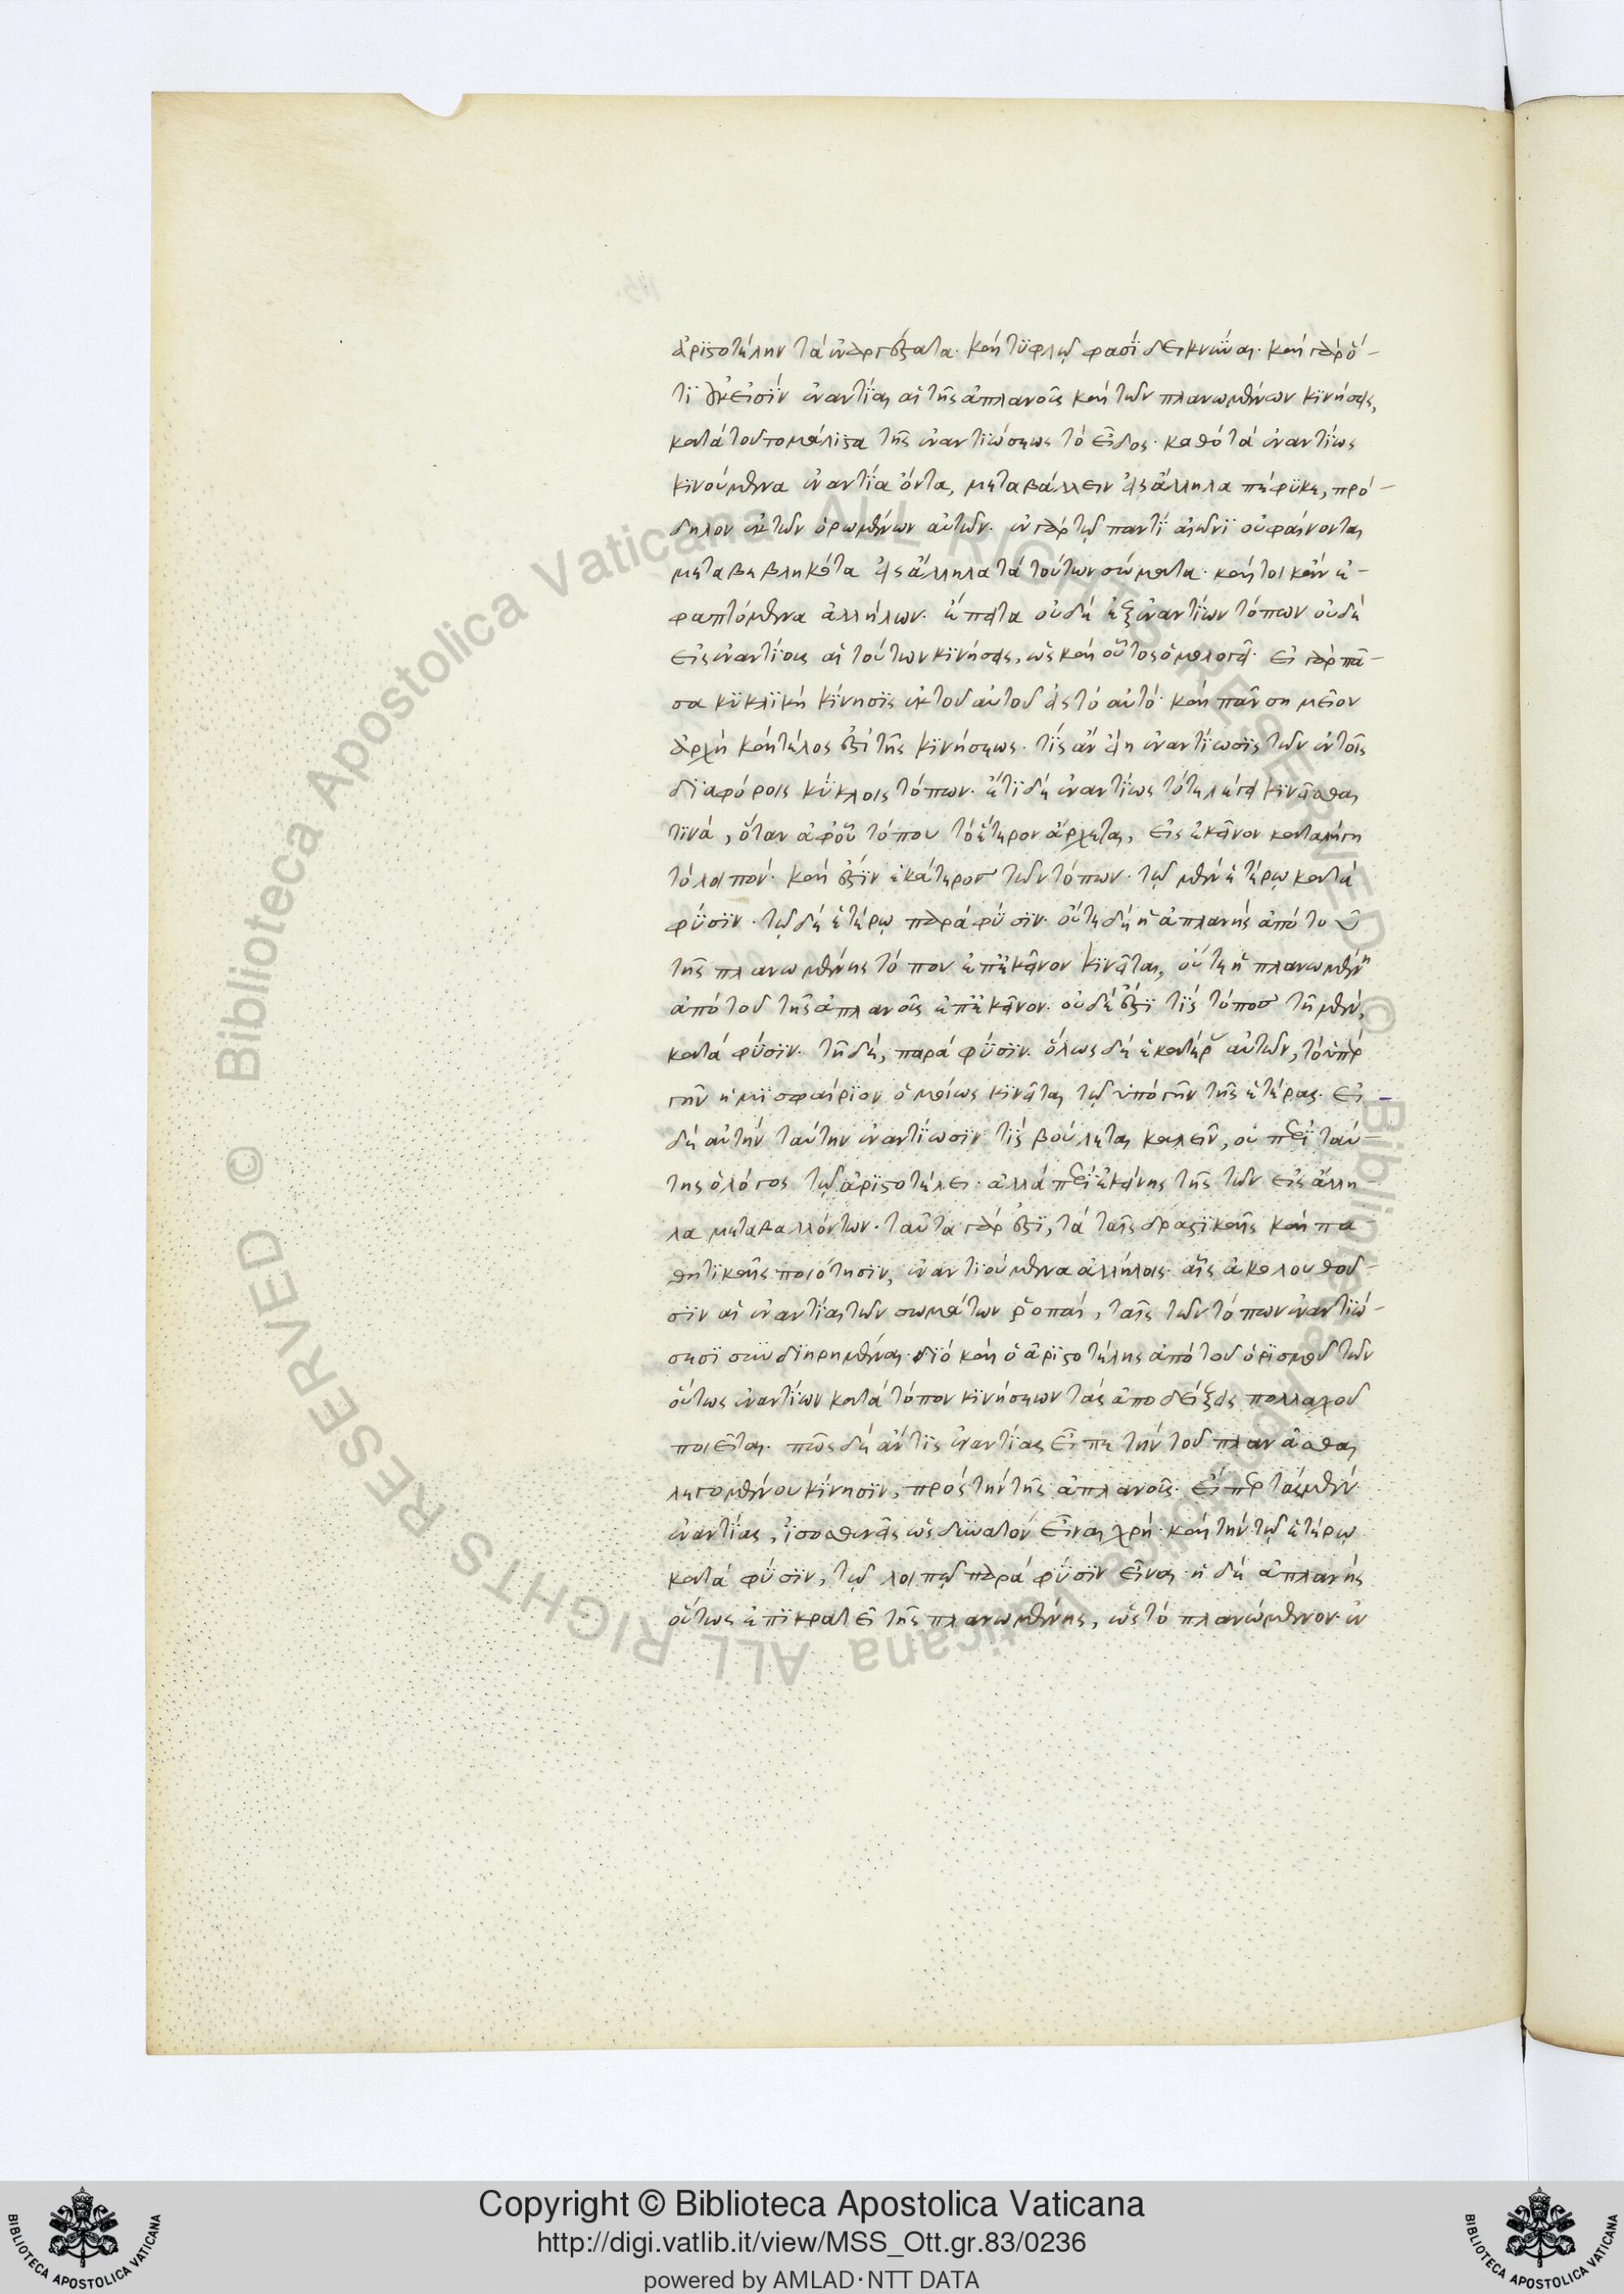 ἀριστοτέλην τὰ ἐναργέστατα· καὶ τυφλῷ φασὶ δεικνύναι· καὶ γὰρ ὅ-
τι οὐκ εἰσὶν ἐναντίαι αἱ τῆς ἀπλανοῦς καὶ τῶν πλανωμένων κινήσεις,
κατὰ τοῦτο μάλιστα τῆς ἐναντιώσεως τὸ εἶδος· καθὸ τὰ ἐναντίως
κινούμενα ἐναντία ὄντα, μεταβάλλειν εἰς ἄλληλα πέφυκε, πρό-
δηλον ἐκ τῶν ὁρωμένων αὐτῶν· ἐν γὰρ τῷ παντὶ αἰῶνι οὐ φαίνονται
μεταβεβληκότα εἰς ἄλληλα τὰ τούτων σώματα· καί τοι κἂν ἐ-
φαπτόμενα ἀλλήλων· ἔπειτα οὐδὲ ἐξ ἐναντίων τόπων οὐδὲ
εἰς ἐναντίους αἱ τούτων κινήσεις, ὡς καὶ οὗτος ὁμολογεῖ· εἰ γὰρ πᾶ-
σα κυκλικὴ κίνησις ἐκ τοῦ αὐτοῦ εἰς τὸ αὐτό· καὶ πᾶν σημεῖον
ἀρχὴ καὶ τέλος ἐστὶ τῆς κινήσεως· τίς ἂν εἴη ἐναντίωσις τῶν ἐν τοῖς
διαφόροις κύκλοις τόπων· ἔτι δὲ ἐναντίως τότε λέγει κινεῖσθαι
τινά, ὅταν ἀφ' οὗ τόπου τὸ ἕτερον ἄρχεται, εἰς ἐκεῖνον καταλήγη
τὸ λοιπόν· καὶ ἐστὶν ἑκάτερος τῶν τόπων· τῷ μὲν ἑτέρῳ κατὰ
φύσιν· τῷ δὲ ἑτέρῳ παρὰ φύσιν· οὔτε δὲ ἡ ἀπλανὴς ἀπὸ τοῦ
τῆς πλανωμένης τόπου ἐπ' ἐκεῖνον κινεῖται, οὔτε ἡ πλανωμένη
ἀπὸ τοῦ τῆς ἀπλανοῦς ἐπ' ἐκεῖνον· οὐδέ ἐστι τὶς τόπος τῇ μὲν,
κατὰ φύσιν· τῇ δὲ, παρὰ φύσιν· ὅλως δὲ ἑκατέρου αὐτῶν, τὸ ὑπὲρ
γῆν ἡμισφαίριον ὁμοίως κινεῖται τῷ ὑπὸ γῆν τῆς ἑτέρας· εἰ
δὲ αὐτὴν ταύτην ἐναντίωσιν τὶς βούλεται καλεῖν, οὐ περὶ ταύ-
της ὁ λόγος τῷ ἀριστοτέλει· ἀλλὰ περὶ ἐκείνης τῆς τῶν εἰς ἄλλη-
λα μεταβαλλόντων· ταῦτα γάρ ἐστι, τὰ ταῖς δραστικαῖς καὶ πα-
θητικαῖς ποιότησιν, ἐναντιούμενα ἀλλήλοις· αἷς ἀκολουθοῦ-
σιν αἱ ἐναντίαι τῶν σωμάτων ῥοπαὶ, ταῖς τῶν τόπων ἐναντιώ-
σεσι συνδιῃρημέναι· διὸ καὶ ὁ ἀριστοτέλης ἀπὸ τοῦ ὁρισμοῦ τῶν
οὕτως ἐναντίων κατὰ τόπον κινήσεων τὰς ἀποδείξεις πολλαχοῦ
ποιεῖται· πῶς δὲ ἄν τις ἐναντίας εἶπε τὴν τοῦ πλανᾶσθαι
λεγομένου κίνησιν, πρὸς τὴν τῆς ἀπλανοῦς· εἴπερ τὰς μὲν
ἐναντίας, ἰσοσθενεῖς ὡς δυνατὸν εἶναι χρή· καὶ τὴν τῷ ἑτέρῳ
κατὰ φύσιν, τῷ λοιπῷ παρὰ φύσιν εἶναι· ἡ δὲ ἀπλανὴς
οὕτως ἐπικρατεῖ τῆς πλανωμένης, ὡς τὸ πλανώμενον· ἐν
Copyright © Biblioteca Apostolica Vaticana
http://digi.vatlib.it/view/MSS_Ott.gr.83/0236
powered by AMLAD·NTT DATA